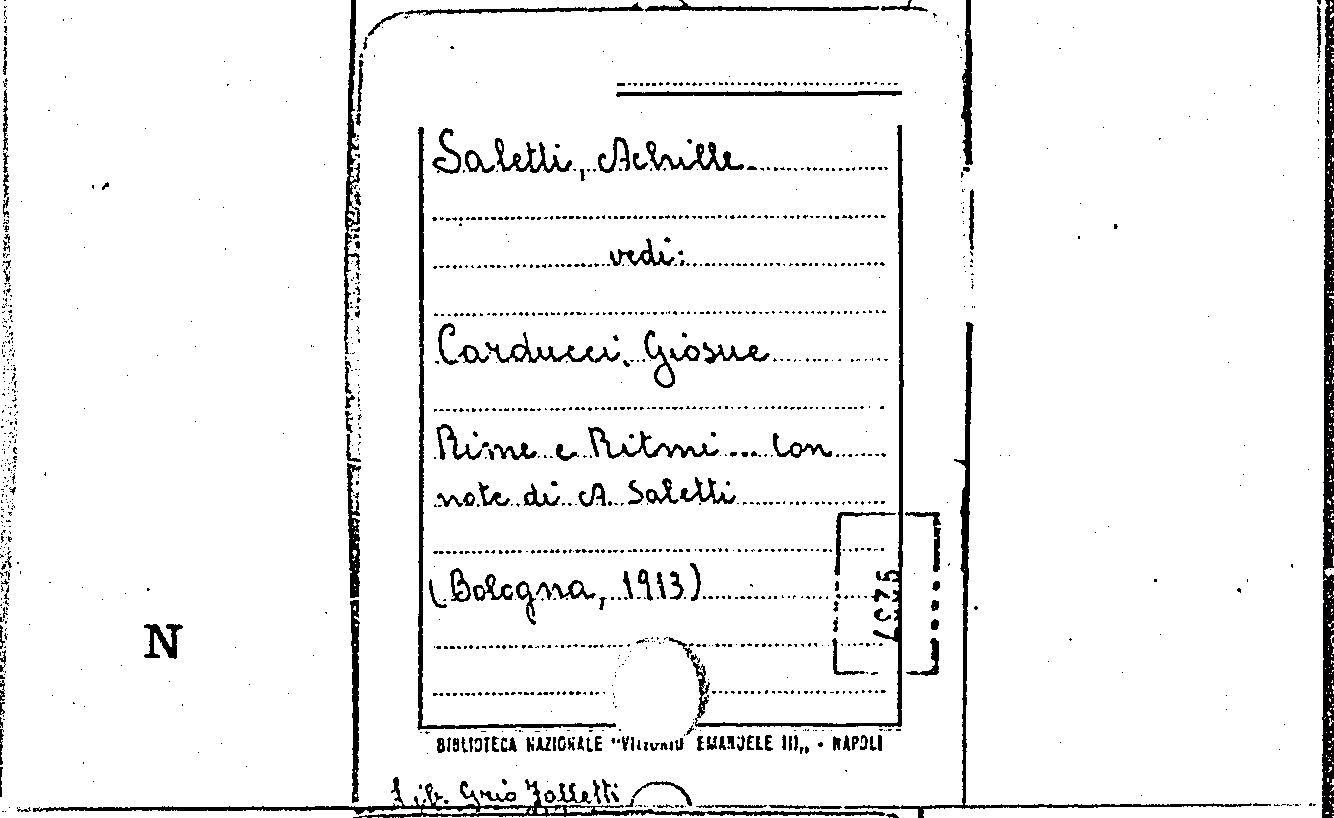 Saletti, Achille.
vedi:
Carducci, Giosue
Rime e Ritmi... Con
note di A. Saletti
(Bologna, 1913)
N
BIBLIOTECA NAZIONALE "VITTORIO EMANUELE III„ - NAPOLI